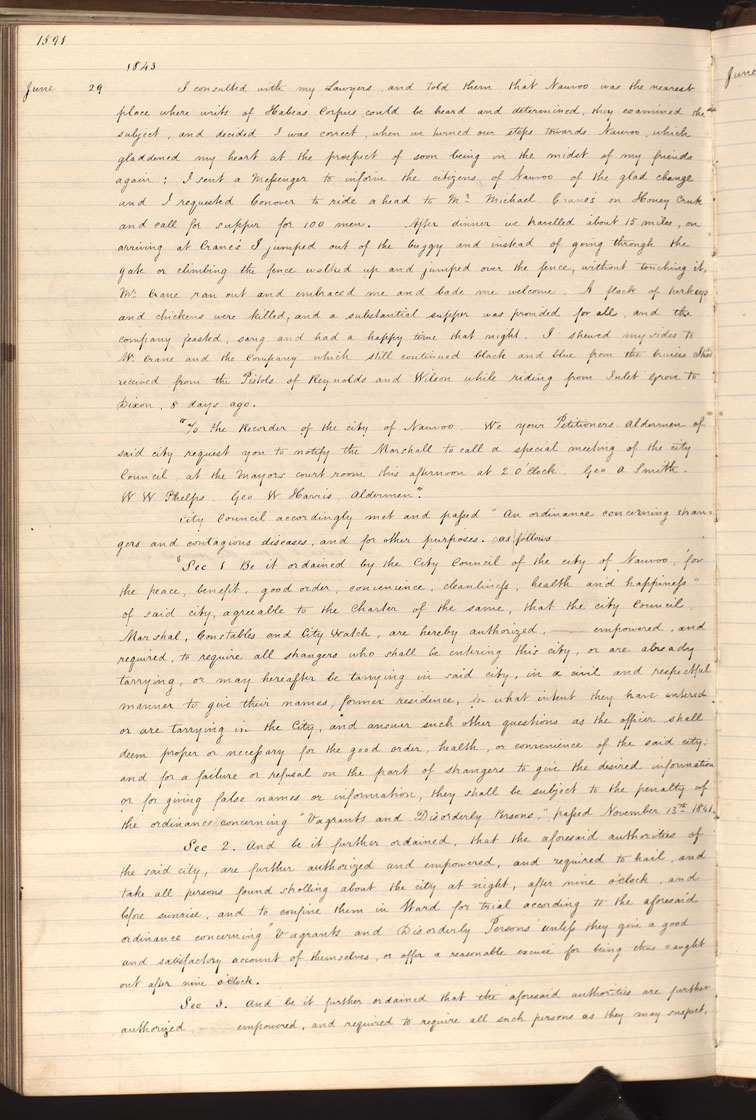 1591
1843
June 29 I consulted with my Lawyers, and told them that Nauvoo was the nearest
June
place where writs of Habeas Corpus could be heard and determined, they examined the
subject, and decided I was correct, when we turned our steps towards Nauvoo, which
gladdened my heart at the prospect of soon being in the midst of my friends
again; I sent a Messenger to inform the citizens of Nauvoo of the glad change
and I requested Conover to ride ahead to Mr. Michael Crane's on Honey Creek
and call for supper for 100 men. After dinner we travelled about 15 miles, on
arriving at Crane's I jumped out of the buggy and instead of going through the
gate or climbing the fence walked up and jumped over the fence, without touching it,
Mr. Crane ran out and embraced me and bade me welcome. A flock of turkeys
and chickens were killed, and a substantial supper was provided for all, and the
company feasted, sang and had a happy time that night. I shewed my sides to
Mr. Crane and the Company which still continued black and blue from the bruises I had
received from the Pistols of Reynolds and Wilson while riding from Inlet Grove to
Dixon, 8 days ago.
"To the Recorder of the city of Nauvoo. We your Petitioners Aldermen of
said city request you to notify the Marshall to call a special meeting of the city
Council, at the Mayors court room this afternoon at 2 O'Clock. Geo A Smith.
W W Phelps. Geo W Harris, Aldermen".
City Council accordingly met and passed "An ordinance concerning stran-
gers and contagious diseases, and for other purposes. as follows
"Sec 1 Be it ordained by the City Council of the city of Nauvoo, "for
the peace, benefit, good order, convenience, cleanliness, health and happiness"
of said city, agreeable to the Charter of the same, that the city Council,
Marshal, Constables and City Watch, are hereby authorized, empowered, and
required, to require all strangers who shall be entering this city, or are already
tarrying, or may hereafter be tarrying in said city, in a civil and respectful
manner to give their names, former residence, for what intent they have entered
or are tarrying in the City, and answer such other questions as the officer shall
deem proper or necessary for the good order, health, or convenience of the said city;
and for a failure or refusal on the part of strangers to give the desired information
or for giving false names or information, they shall be subject to the penalty of
the ordinance concerning "Vagrants and Disorderly Persons," passed November 13th 1841.
Sec 2. And be it further ordained, that the aforesaid authorities of
the said city, are further authorized and empowered, and required to hail, and
take all persons found strolling about the city at night, after nine o'clock, and
before sunrise, and to confine them in Ward for trial according to the aforesaid
ordinance concerning "Vagrants and Disorderly Persons unless they give a good
and satisfactory account of themselves, or offer a reasonable excuse for being thus caught
out after nine o'clock.
Sec 3. And be it further ordained that the aforesaid authorities are further
authorized, empowered, and required to require all such persons as they may suspect,